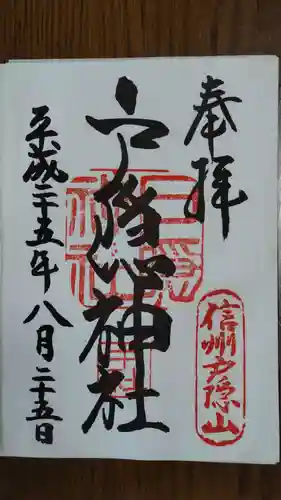 奉拝
信州戸隠山
戸隠神社
平成二十五年八月二十五日